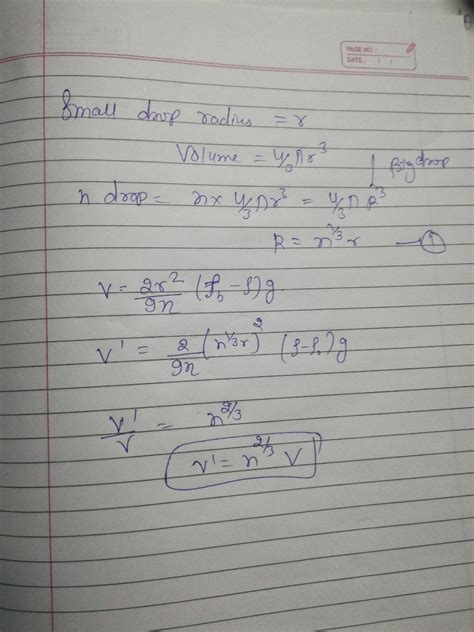 PAGE NO :
DATE : / /
Small drop radius = r
Volume = 4/3 πr³
big drop
n drop = n x 4/3 πr³ = 4/3 π R³
R = n^1/3 r — ①
V = 2r²/9η (ρb - ρ) g.
V' = 2/9η (n^1/3 r)² (ρ-ρ.) g
V'/V = n^2/3
V' = n^2/3 V